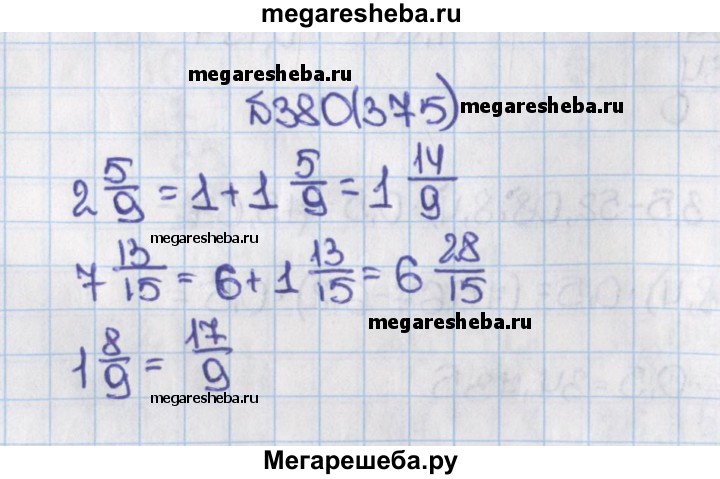 megaresheba.ru
megaresheba.ru
№380(375) megaresheba.ru
2 5/9 = 1 + 1 5/9 = 1 14/9
megaresheba.ru
7 13/15 = 6 + 1 13/15 = 6 28/15
megaresheba.ru
1 8/9 = 17/9
megaresheba.ru
Мегарешеба.ру